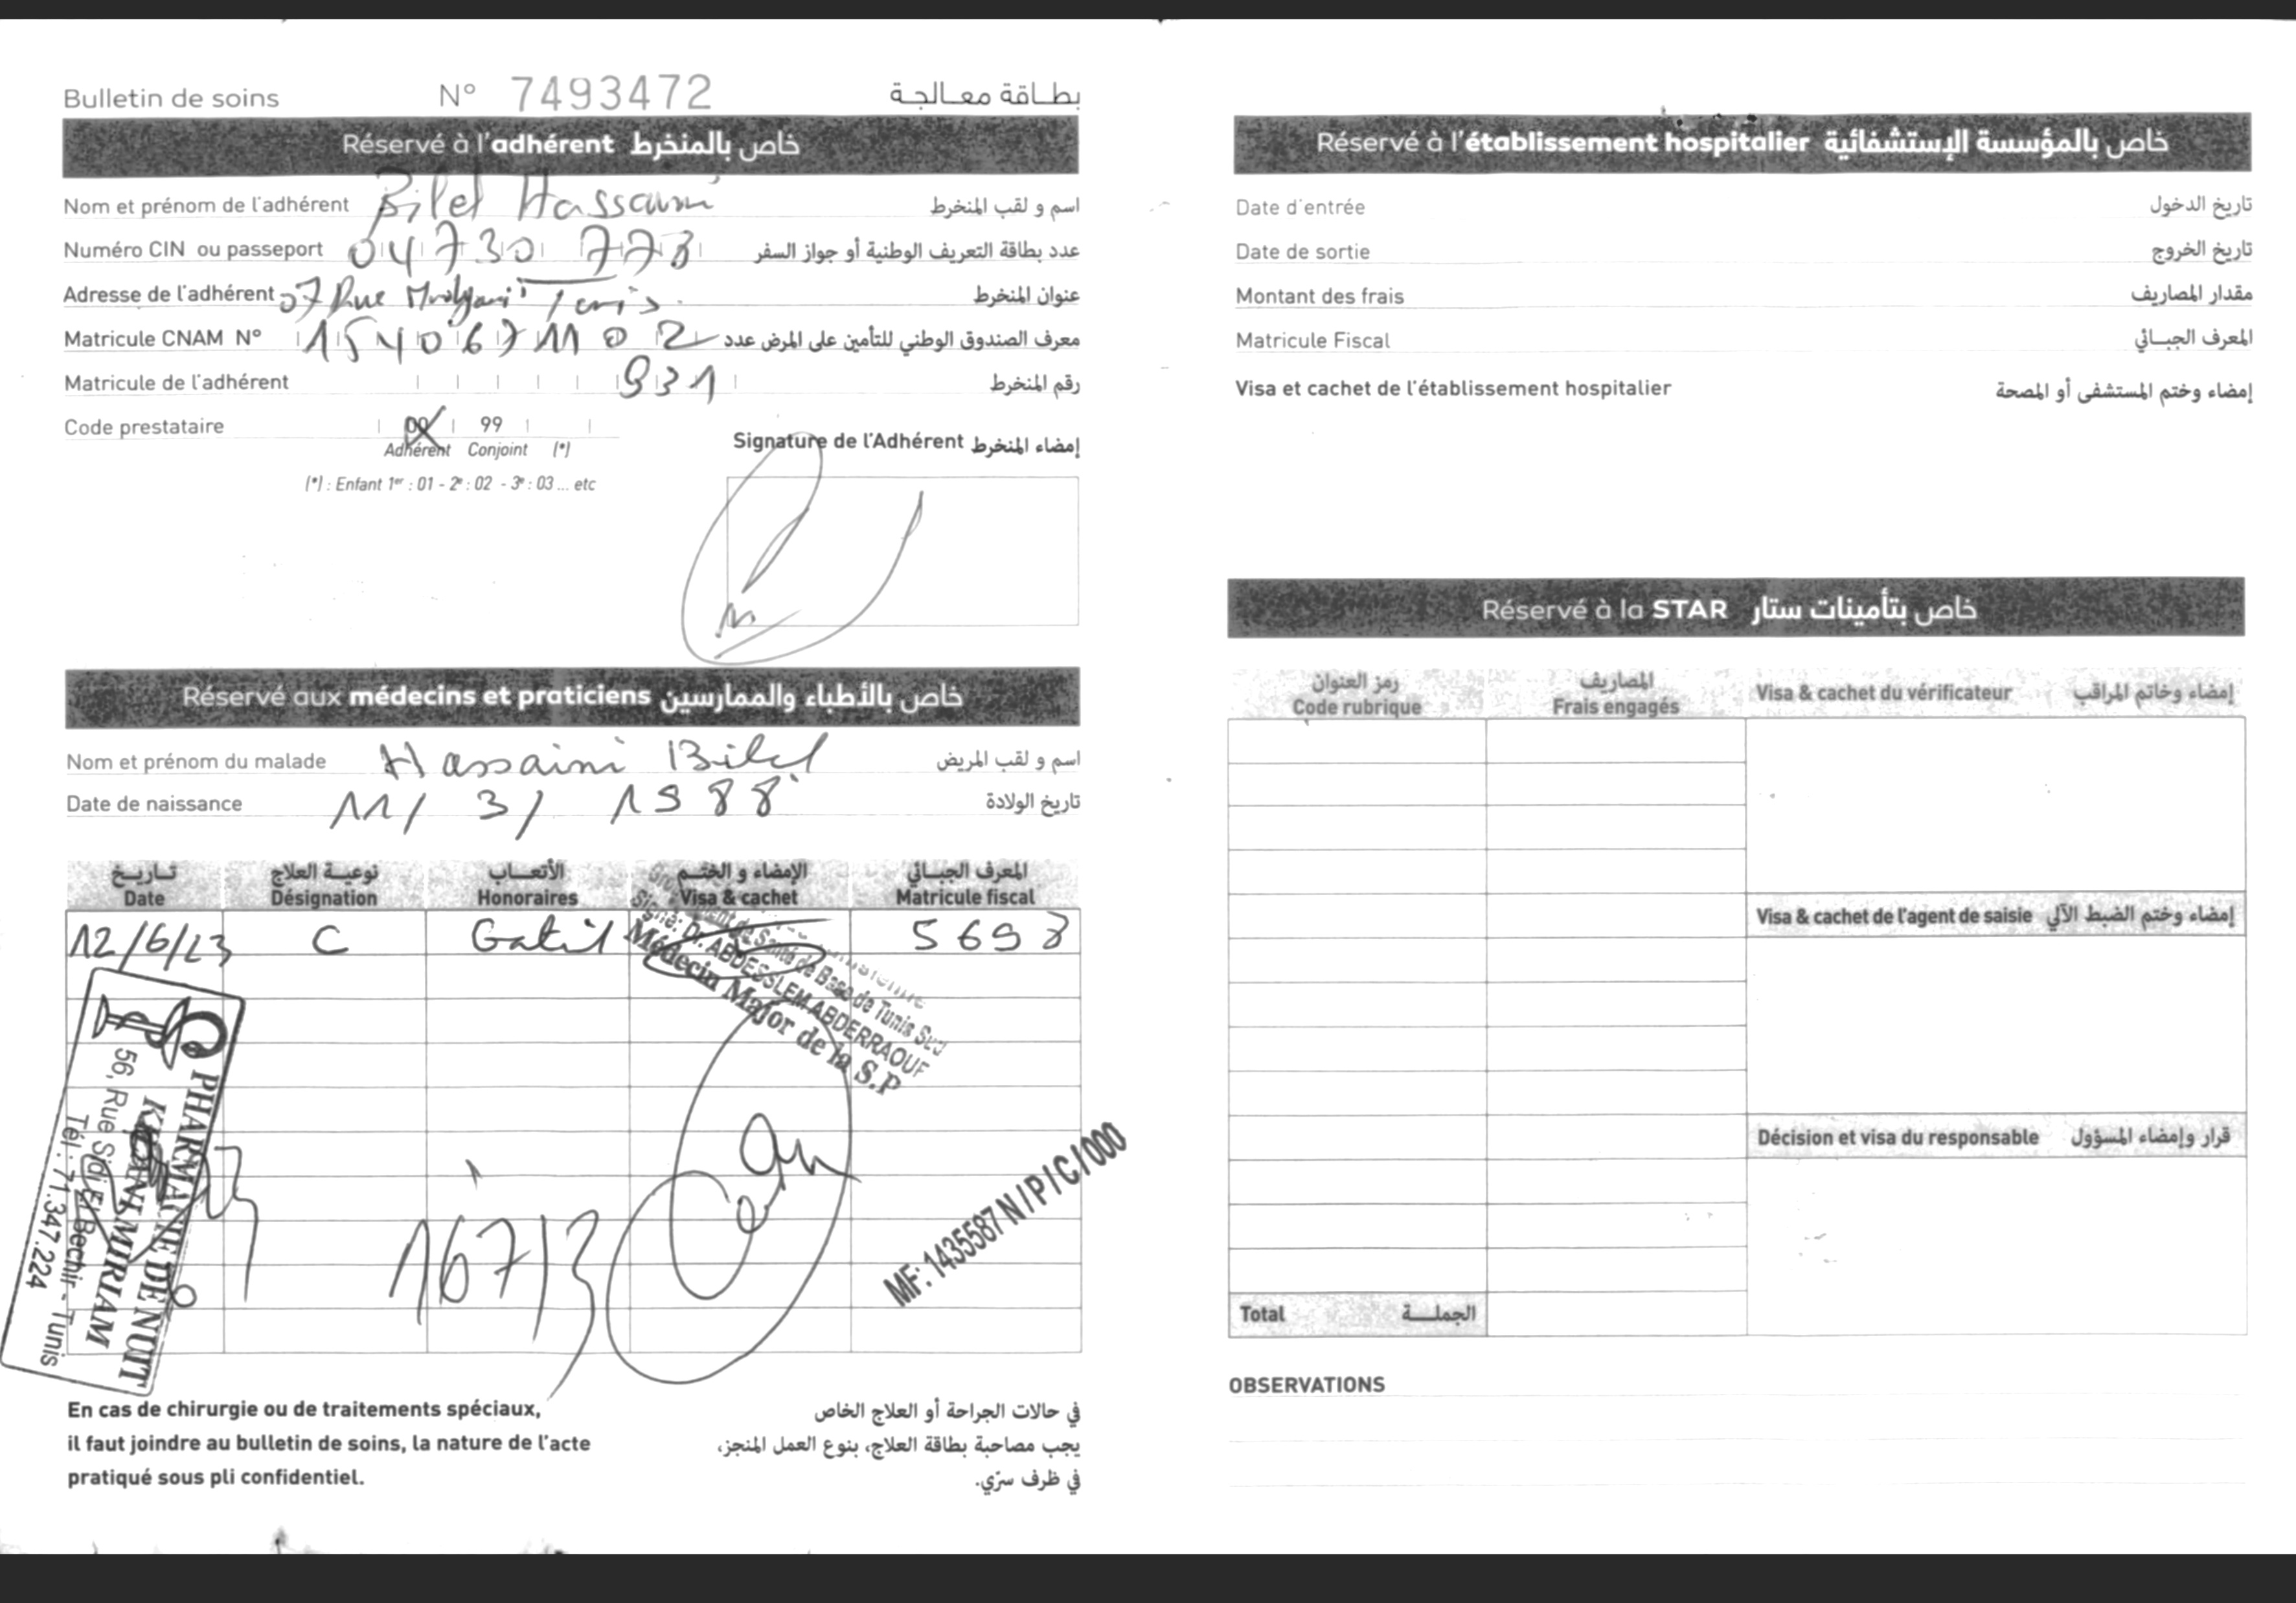 Bulletin de soins N° 7493472 بطاقة معالجة
Réservé à l'adhérent خاص بالمنخرط
Nom et prénom de l'adhérent Bilel Hassaini اسم و لقب المنخرط
Numéro CIN ou passeport 04730 778 عدد بطاقة التعريف الوطنية أو جواز السفر
Adresse de l'adhérent 07 Rue Tunis. عنوان المنخرط
Matricule CNAM N° 154067 110 2 معرف الصندوق الوطني للتأمين على المرض عدد
Matricule de l'adhérent 931 رقم المنخرط
Code prestataire 00 99
Adhérent Conjoint (*)
(*) : Enfant 1er : 01 - 2e : 02 - 3e : 03 ... etc
Signature de l'Adhérent إمضاء المنخرط
Réservé aux médecins et praticiens خاص بالأطباء والممارسين
Nom et prénom du malade Hassaini Bilel اسم و لقب المريض
Date de naissance 11/ 3/ 1988 تاريخ الولادة
تاريخ نوعية العلاج الأتعاب الإمضاء و الختم المعرف الجبائي
Date Désignation Honoraires Visa & cachet Matricule fiscal
12/6/23 C 5698
de Santé de Base de Tunis Sud
Signé: Dr. ABDESSLEM ABDERRAOUF
Médecin Major de la S.P
PHARMACIE DE NUIT
MIRIAM
56, Rue Sidi El Bechir - Tunis
Tél : 71.347.224
MF: 1435587 N/P/C/000
En cas de chirurgie ou de traitements spéciaux,
il faut joindre au bulletin de soins, la nature de l'acte
pratiqué sous pli confidentiel.
في حالات الجراحة أو العلاج الخاص
يجب مصاحبة بطاقة العلاج، بنوع العمل المنجز،
في ظرف سرّي.
Réservé à l'établissement hospitalier خاص بالمؤسسة الإستشفائية
Date d'entrée تاريخ الدخول
Date de sortie تاريخ الخروج
Montant des frais مقدار المصاريف
Matricule Fiscal المعرف الجبائي
Visa et cachet de l'établissement hospitalier إمضاء وختم المستشفى أو المصحة
Réservé à la STAR خاص بتأمينات ستار
رمز العنوان المصاريف
Code rubrique Frais engagés Visa & cachet du vérificateur إمضاء وخاتم المراقب
Visa & cachet de l'agent de saisie إمضاء وختم الضبط الآلي
Décision et visa du responsable قرار وإمضاء المسؤول
Total الجملة
OBSERVATIONS